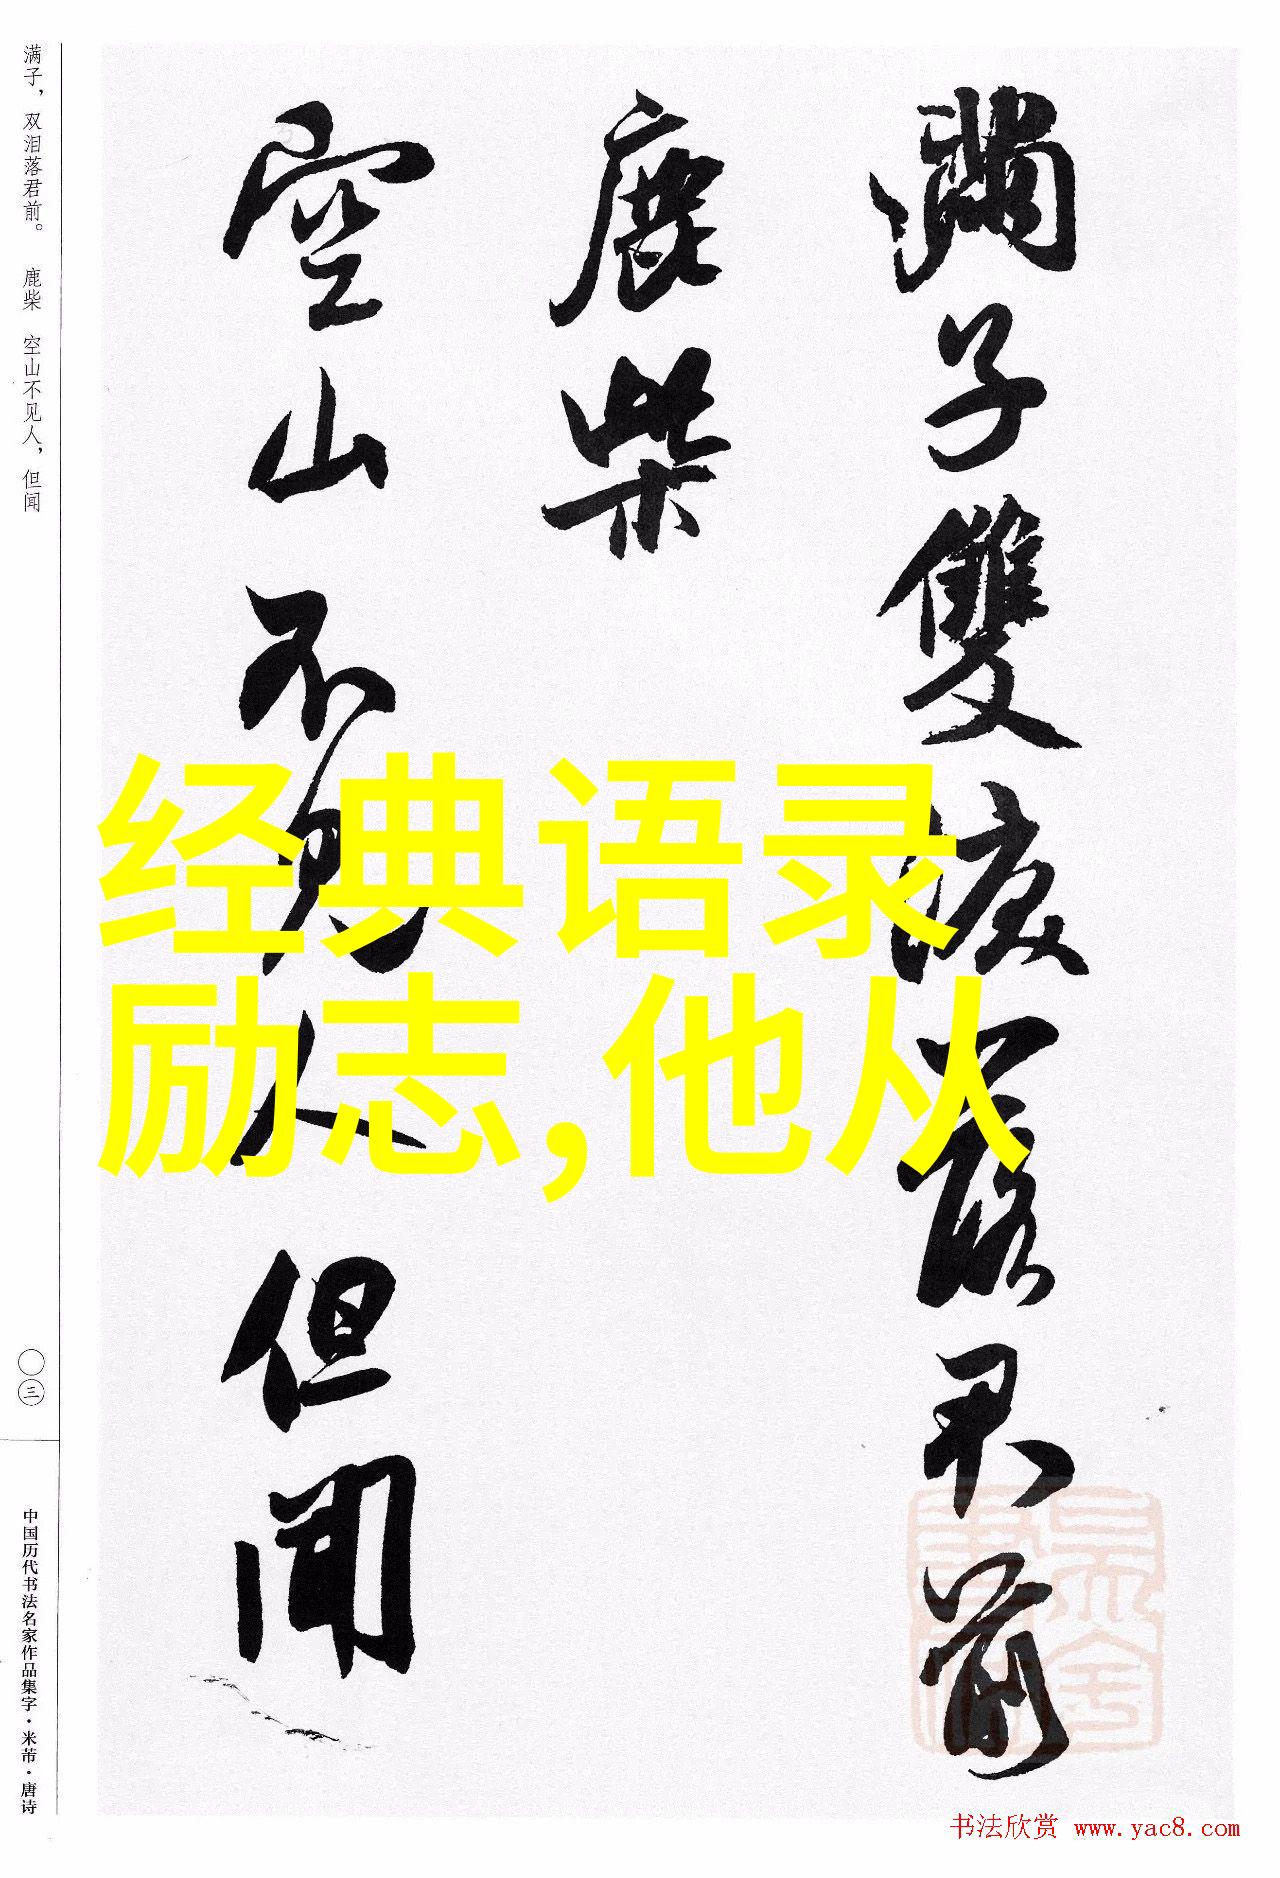 满子，双泪落君前。 鹿柴 空山不见人，但闻
滿子雙淚落君前
鹿柴
空山不見人但聞
经典语录
励志,他从
〇三
中国历代书法名家作品集字·米芾·唐诗
书法欣赏 www.yac8.com